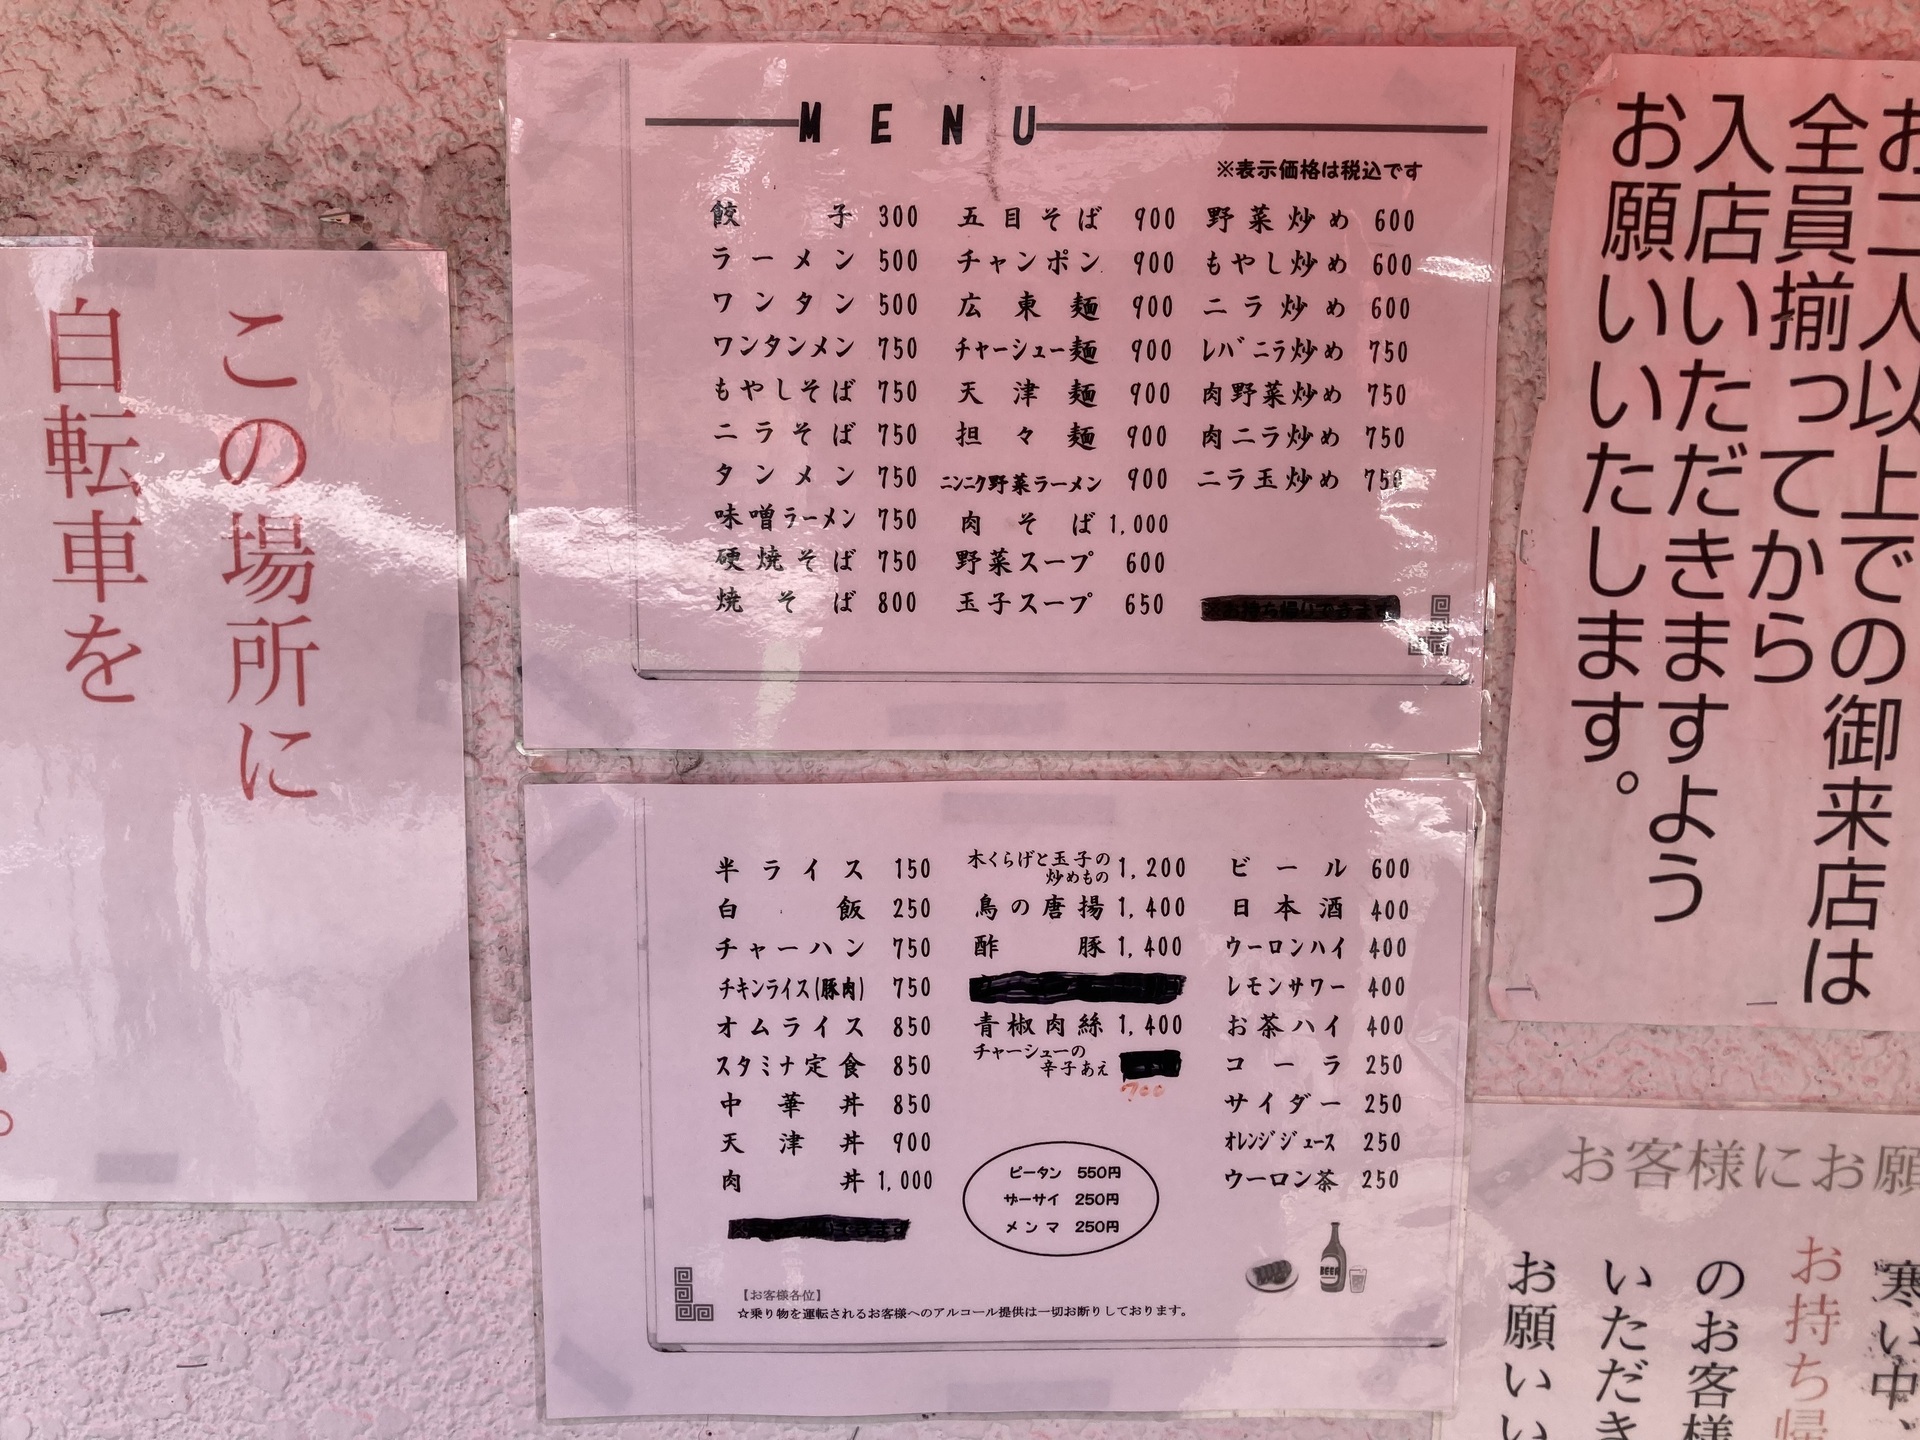 この場所に
自転車を
MENU
※表示価格は税込です
餃子 300
ラーメン 500
ワンタン 500
ワンタンメン 750
もやしそば 750
ニラそば 750
タンメン 750
味噌ラーメン 750
硬焼そば 750
焼そば 800
五目そば 900
チャンポン 900
広東麺 900
チャーシュー麺 900
天津麺 900
担々麺 900
ニンニク野菜ラーメン 900
肉そば 1,000
野菜スープ 600
玉子スープ 650
野菜炒め 600
もやし炒め 600
ニラ炒め 600
レバニラ炒め 750
肉野菜炒め 750
肉ニラ炒め 750
ニラ玉炒め 750
半ライス 150
白飯 250
チャーハン 750
チキンライス(豚肉) 750
オムライス 850
スタミナ定食 850
中華丼 850
天津丼 900
肉丼 1,000
木くらげと玉子の
炒めもの 1,200
鳥の唐揚 1,400
酢豚 1,400
青椒肉絲 1,400
チャーシューの
辛子あえ
700
ピータン 550円
ザーサイ 250円
メンマ 250円
ビール 600
日本酒 400
ウーロンハイ 400
レモンサワー 400
お茶ハイ 400
コーラ 250
サイダー 250
オレンジジュース 250
ウーロン茶 250
BEER
【お客様各位】
☆乗り物を運転されるお客様へのアルコール提供は一切お断りしております。
お二人以上での御来店は
全員揃ってから
入店いただきますよう
お願いいたします。
お客様にお願
寒い中、
お持ち帰
のお客様
いただき
お願いい